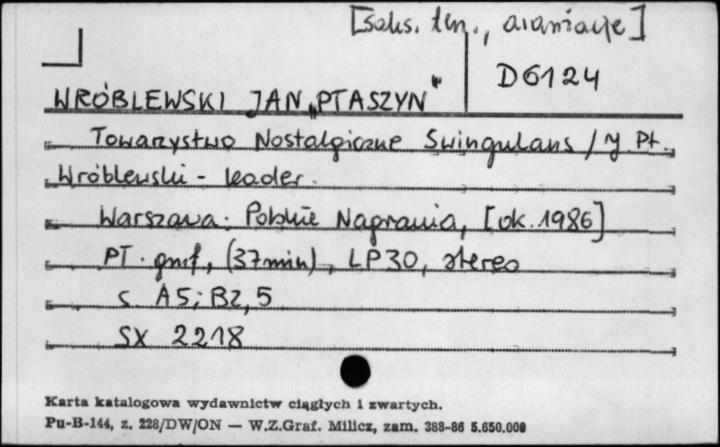 [saks. ten., aranżacje]
D6124
WRÓBLEWSKI JAN „PTASZYN"
Towarzystwo Nostalgiczne Swingulans / J. Pt.
Wróblewski - leader.
Warszawa: Polskie Nagrania, [ok. 1986]
PT. gmf, (37min), LP30, stereo
s A5; B2,5
SX 2218
Karta katalogowa wydawnictw ciągłych i zwartych.
Pu-B-144, z. 228/DW/ON — W.Z.Graf. Milicz, zam. 388-86 5.650.000